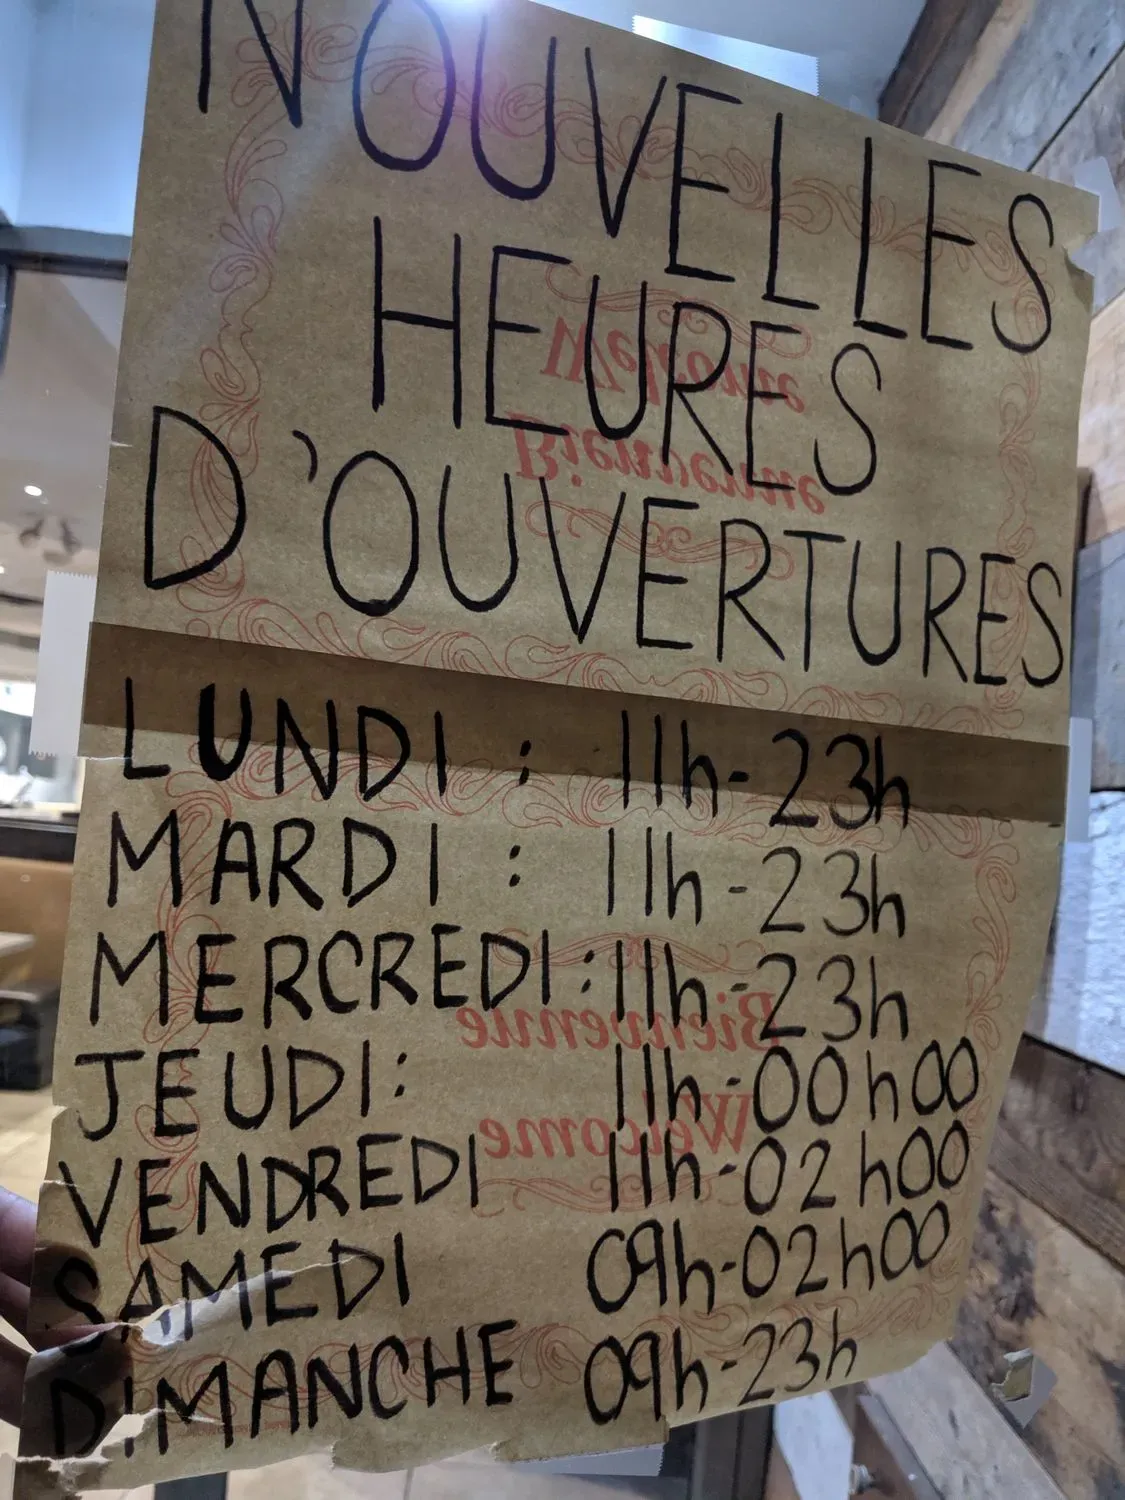 NOUVELLES
HEURES
Welcome
Bienvenue
D'OUVERTURES
LUNDI : 11h-23h
MARDI : 11h-23h
MERCREDI : 11h-23h
Bienvenue
JEUDI : 11h-00h00
Welcome
VENDREDI 11h-02h00
SAMEDI 09h-02h00
DIMANCHE 09h-23h